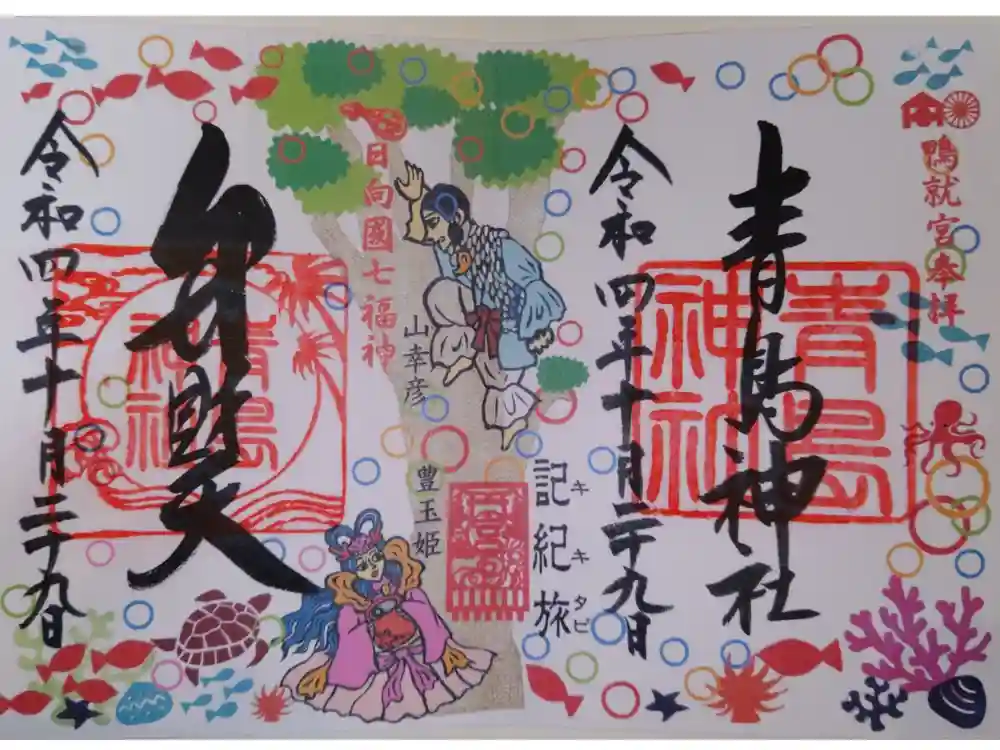 鴨就宮奉拝
青島神社
青島
神社
令和四年十月二十九日
記紀旅
キキタビ
日向國七福神
山幸彦
豊玉姫
弁財天
青島
神社
令和四年十月二十九日